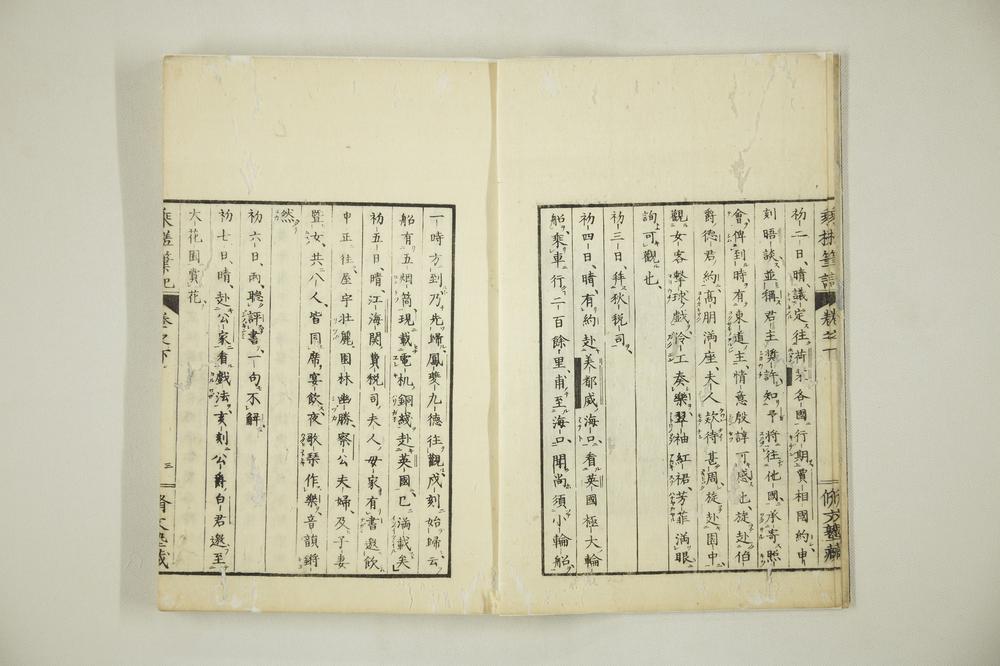 初二日晴議定往荷蘭各國行期賈相國約申
刻晤談並稱君主獎許知予將往他國承寄照
會俾到時有東道主情意殷諄可感也旋赴伯
爵德君約高朋滿座夫人欸待甚周旋赴園中
觀女客擊球戲泠工奏樂翠袖紅裙芳菲滿眼
詢可觀也
初三日拜狄税司
初四日晴有約赴美都威海口看英國極大輪
船乘車行二百餘里甫至海口聞尚須小輪船
一時方到乃先歸鳳夔九德往觀戌刻始歸云
船有五烟筒現載電机銅綫赴英國已滿載矣
初五日晴江海関費税司夫人母家有書邀飲
申正往屋宇壮麗園林幽勝察公夫婦及子妻
曁汝共八人皆同席宴飲夜歌琴作樂音韻鏘
然
初六日雨聽評書一句不解
初七日晴赴公家看戲法亥刻公爵白君邀至
大花園賞花
乘槎筆記
卷之下
三